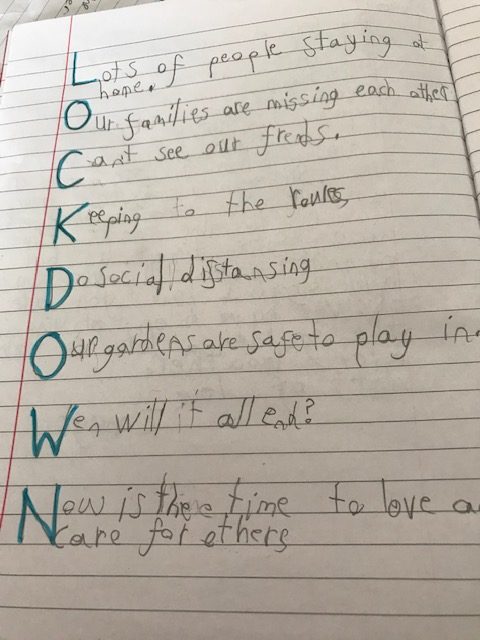 Lots of people staying at
home.
Our families are missing each other
Cant see our freds.
Keeping to the roules
Do social distansing
Our gardens are safe to play in.
Wen will it all end?
Now is the time to love a
care for others